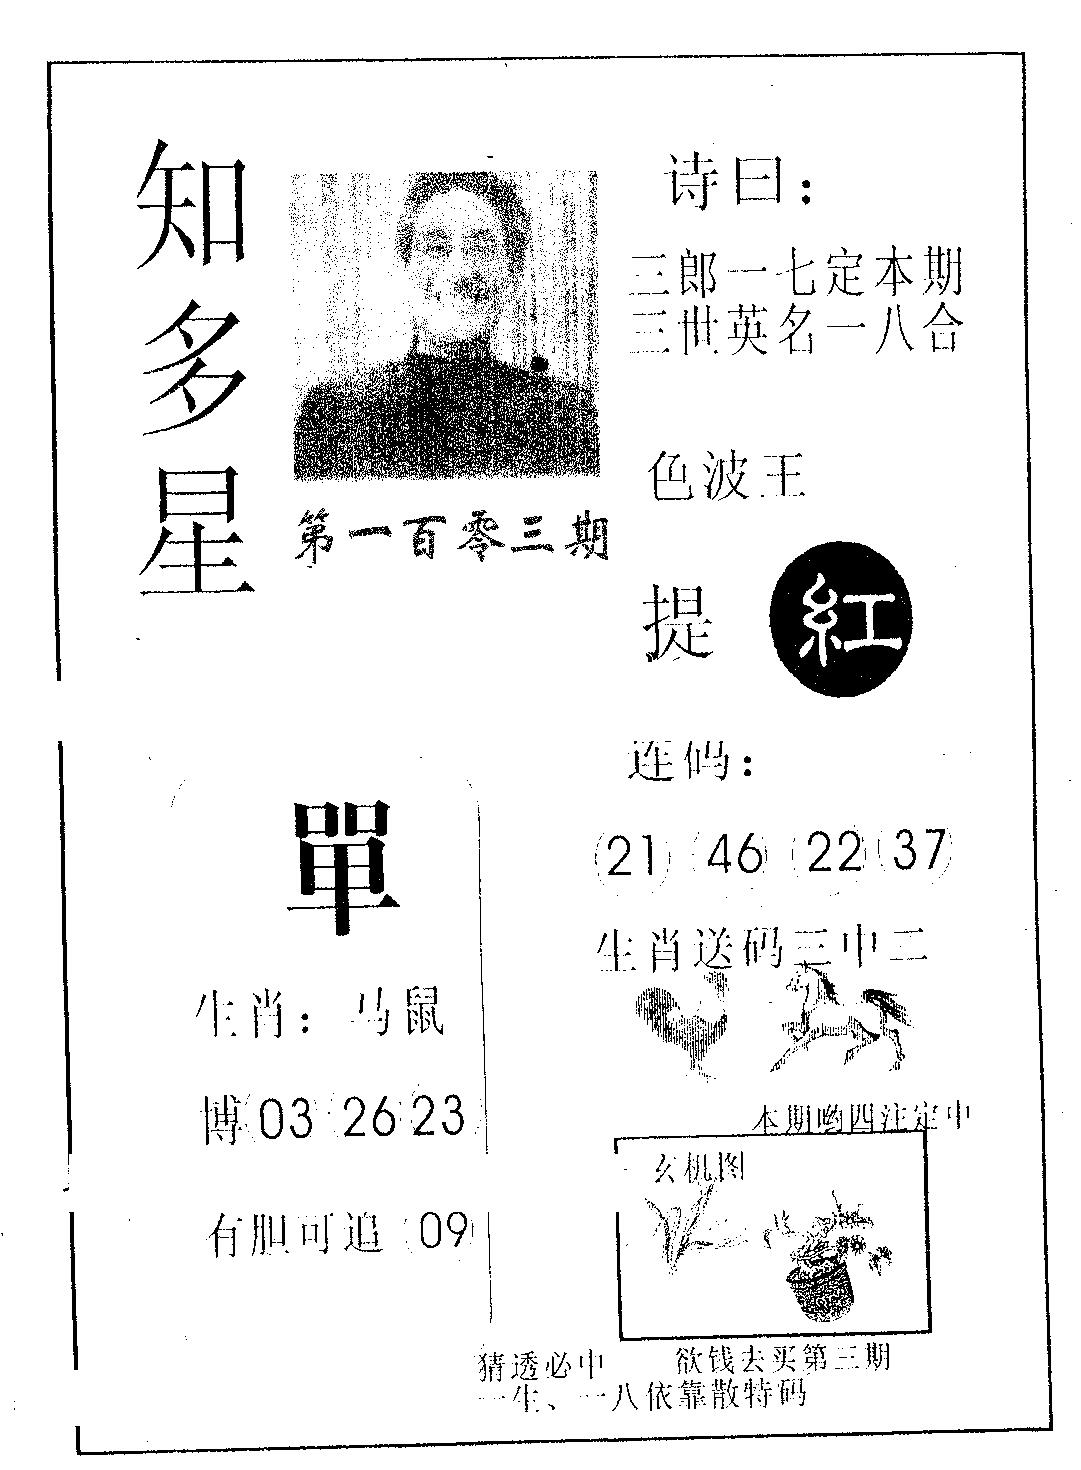 知多星
第一百零三期
诗曰：
三郎一七定本期
三世英名一八合
色波王
提 紅
單
生肖：马鼠
博 03 26 23
有胆可追 09
连码：
21 46 22 37
生肖送码三中二
本期哟四注定中
玄机图
猜透必中 欲钱去买第三期
一生、一八依靠散特码